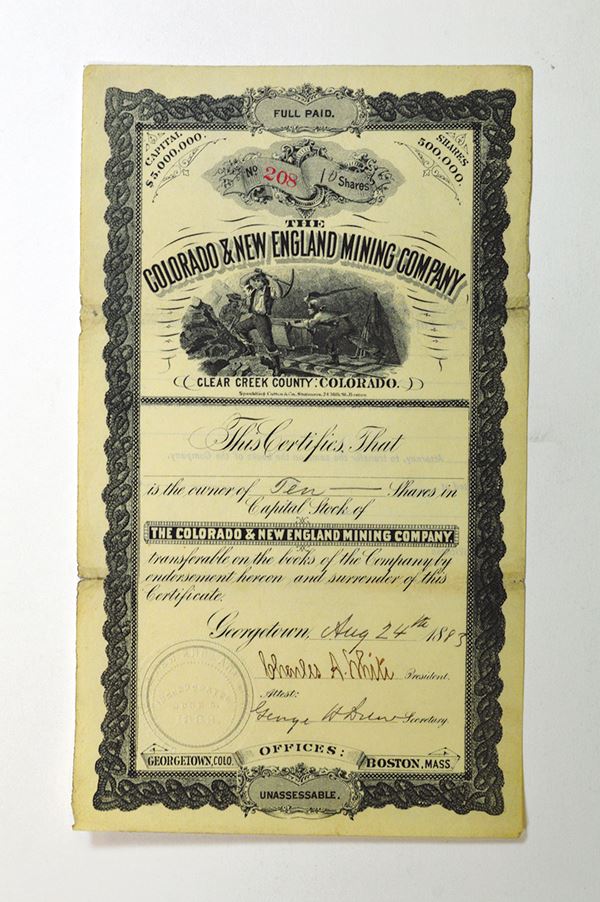 FULL PAID.
CAPITAL
$5,000,000.
SHARES
500,000.
No 208 10 Shares
THE
COLORADO & NEW ENGLAND MINING COMPANY
CLEAR CREEK COUNTY: COLORADO.
This Certifies, That
is the owner of Ten Shares in
Capital Stock of
THE COLORADO & NEW ENGLAND MINING COMPANY.
transferable on the books of the Company by
endorsement hereon and surrender of this
Certificate.
Georgetown, Aug 24th 1883
Charles A. White President.
Attest:
George W Drew Secretary.
OFFICES:
GEORGETOWN, COLO.
BOSTON, MASS.
UNASSESSABLE.